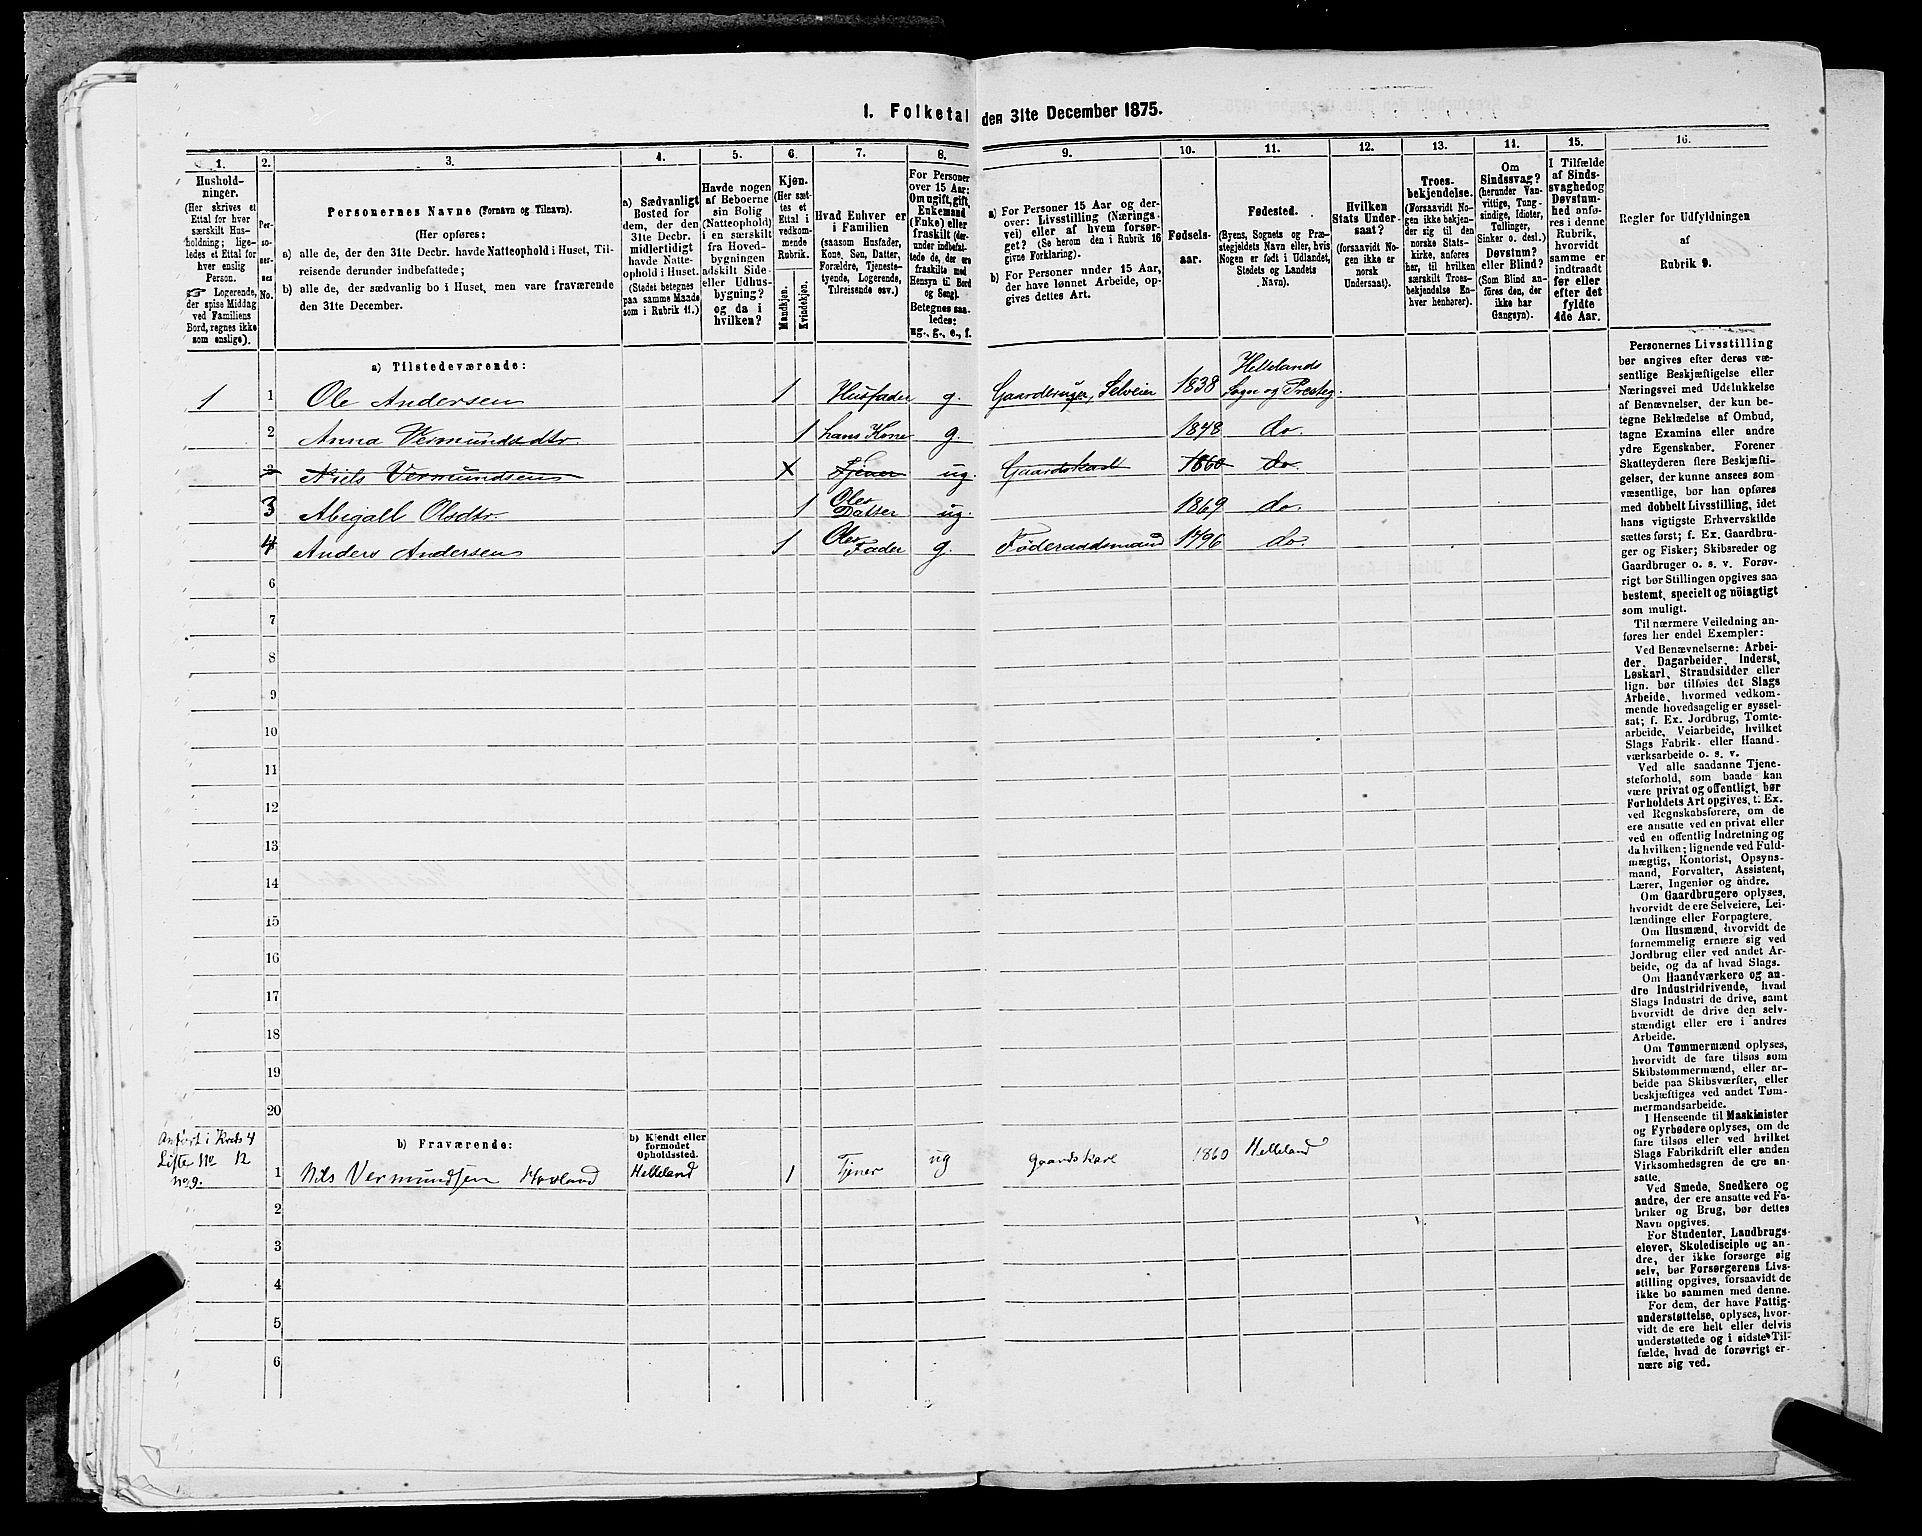 1. Folketal den 31te December 1875.
1.
Hushold-
ninger.
(Her skrives et
Ettal for hver
særskilt Hus-
holdning; lige-
ledes et Ettal for
hver enslig
Person.
☞ Logerende,
der spise Middag
ved Familiens
Bord, regnes ikke
som enslige).
2.
Per-
so-
ner-
nes
No.
3.
Personernes Navne (Fornavn og Tilnavn).
(Her opføres:
a) alle de, der den 31te Decbr. havde Natteophold i Huset, Til-
reisende derunder indbefattede;
b) alle de, der sædvanlig bo i Huset, men vare fraværende
den 31te December.
4.
a) Sædvanligt
Bosted for
dem, der den
31te Decbr.
midlertidigt
havde Natte-
ophold i Huset.
(Stedet betegnes
paa samme Maade
som i Rubrik 11.)
5.
Havde nogen
af Beboerne
sin Bolig
(Natteophold)
i en særskilt
fra Hoved-
bygningen
adskilt Side-
eller Udhus-
bygning?
og da i
hvilken?
6.
Kjøn.
(Her sæt-
tes et
Ettal i
vedkom-
mende
Rubrik.
Mandkjøn.
Kvindekjøn.
7.
Hvad Enhver er
i Familien
(saasom Husfader,
Kone, Søn, Datter,
Forældre, Tjeneste-
tyende, Logerende,
Tilreisende osv.)
8.
For Personer
over 15 Aar:
Om ugift, gift,
Enkemand
(Enke) eller
fraskilt (der-
under indbefat-
tede de, der ere
fraskilte med
Hensyn til Bord
og Seng).
Betegnes saa-
ledes:
ug., g., e., f.
9.
a) For Personer 15 Aar og der-
over: Livsstilling (Nærings-
vei) eller af hvem forsør-
get? (Se herom den i Rubrik 16
givne Forklaring).
b) For Personer under 15 Aar,
der have lønnet Arbeide, op-
gives dettes Art.
10.
Fødsels-
aar.
11.
Fødested.
(Byens, Sognets og Præ-
stegjeldets Navn eller, hvis
Nogen er født i Udlandet,
Stedets og Landets
Navn).
12.
Hvilken
Stats Under-
saat?
(forsaavidt No-
gen ikke er
norsk
Undersaat).
13.
Troes-
bekjendelse.
(Forsaavidt No-
gen ikke bekjen-
der sig til den
norske Stats-
kirke, anføres
her, til hvilken
særskilt Troes-
bekjendelse En-
hver henhører).
14.
Om
Sindssvag?
(herunder Van-
vittige, Tung-
sindige, Idioter,
Tullinger,
Sinker o. desl.)
Døvstum?
eller Blind?
(Som Blind an-
føres den, der
ikke har
Gangsyn).
15.
I Tilfælde
af Sinds-
svaghed og
Døvstum-
hed anfø-
res i denne
Rubrik,
hvorvidt
samme er
indtraadt
før eller
efter det
fyldte
4de Aar.
16.
Regler for Udfyldningen
af
Rubrik 9.
a) Tilstedeværende:
1 1 Ole Andersen 1 Husfader g. Gaardbruger, Selveier 1838 Hellelands Sogn og Presteg.
2 Anna Vermundsdtr. 1 hans Kone g. 1848 do.
3 Niels Vermundsen X Tjener ug. Gaardskarl 1860 do.
3 Abigall Olsdtr. 1 Oles Datter ug. 1869 do.
4 Anders Andersen 1 Oles Fader g. Føderaadsmand 1796 do.
6
7
8
9
10
11
12
13
14
15
16
17
18
19
20
Anført i Kreds 4
Liste No 12
No 9.
b) Fraværende:
b) Kjendt eller
formodet
Opholdssted.
1 Nils Vermundsen Hovland Helleland 1 Tjener ug Gaardskarl 1860 Helleland
2
3
4
5
6
Personernes Livsstilling
bør angives efter deres væ-
sentlige Beskjæftigelse eller
Næringsvei med Udelukkelse
af Benævnelser, der kun be-
tegne Beklædelse af Ombud,
tagne Examina eller andre
ydre Egenskaber. Forener
Skatteyderen flere Beskjæfti-
gelser, der kunne ansees som
væsentlige, bør han opføres
med dobbelt Livsstilling, idet
hans vigtigste Erhvervskilde
sættes først; f. Ex. Gaardbru-
ger og Fisker; Skibsreder og
Gaardbruger o. s. v. Forøv-
rigt bør Stillingen opgives saa
bestemt, specielt og nöiagtigt
som muligt.
Til nærmere Veiledning an-
føres her endel Exempler:
Ved Benævnelserne: Arbei-
der, Dagarbeider, Inderst,
Løskarl, Strandsidder eller
lign. bør tilføies det Slags
Arbeide, hvormed vedkom-
mende hovedsagelig er syssel-
sat; f. Ex. Jordbrug, Tomte-
arbeide, Veiarbeide, hvilket
Slags Fabrik- eller Haand-
værksarbeide o. s. v.
Ved alle saadanne Tjene-
steforhold, som baade kan
være privat og offentligt, bør
Forholdets Art opgives, t. Ex.
ved Regnskabsførere, om de
ere ansatte ved en privat eller
ved en offentlig Indretning og
da hvilken; lignende ved Fuld-
mægtig, Kontorist, Opsyns-
mand, Forvalter, Assistent,
Lærer, Ingeniør og andre.
Om Gaardbrugere oplyses,
hvorvidt de ere Selveiere, Lei-
lændinge eller Forpagtere.
Om Husmænd, hvorvidt de
fornemmelig ernære sig ved
Jordbrug eller ved andet Ar-
beide, og da af hvad Slags.
Om Haandværkere og an-
dre Industridrivende, hvad
Slags Industri de drive, samt
hvorvidt de drive den selv-
stændigt eller ere i andres
Arbeide.
Om Tømmermænd oplyses,
hvorvidt de fare tilsøs som
Skibstømmermænd, eller ar-
beide paa Skibsværfter, eller
beskjæftiges ved andet Tøm-
mermandsarbeide.
I Henseende til Maskinister
og Fyrbødere oplyses, om de
fare tilsøs eller ved hvilket
Slags Fabrikdrift eller anden
Virksomhedsgren de ere an-
satte.
Ved Smede, Snedkere og
andre, der ere ansatte ved Fa-
briker og Brug, bør dettes
Navn opgives.
For Studenter, Landbrugs-
elever, Skoledisciple og an-
dre, der ikke forsørge sig
selv, bør Forsørgerens Livs-
stilling opgives, forsaavidt de
ikke bo sammen med denne.
For dem, der have Fattig-
understøttelse, oplyses, hvor-
vidt de ere helt eller delvis
understøttede og i sidste Til-
fælde, hvad de forøvrigt er-
nære sig ved.